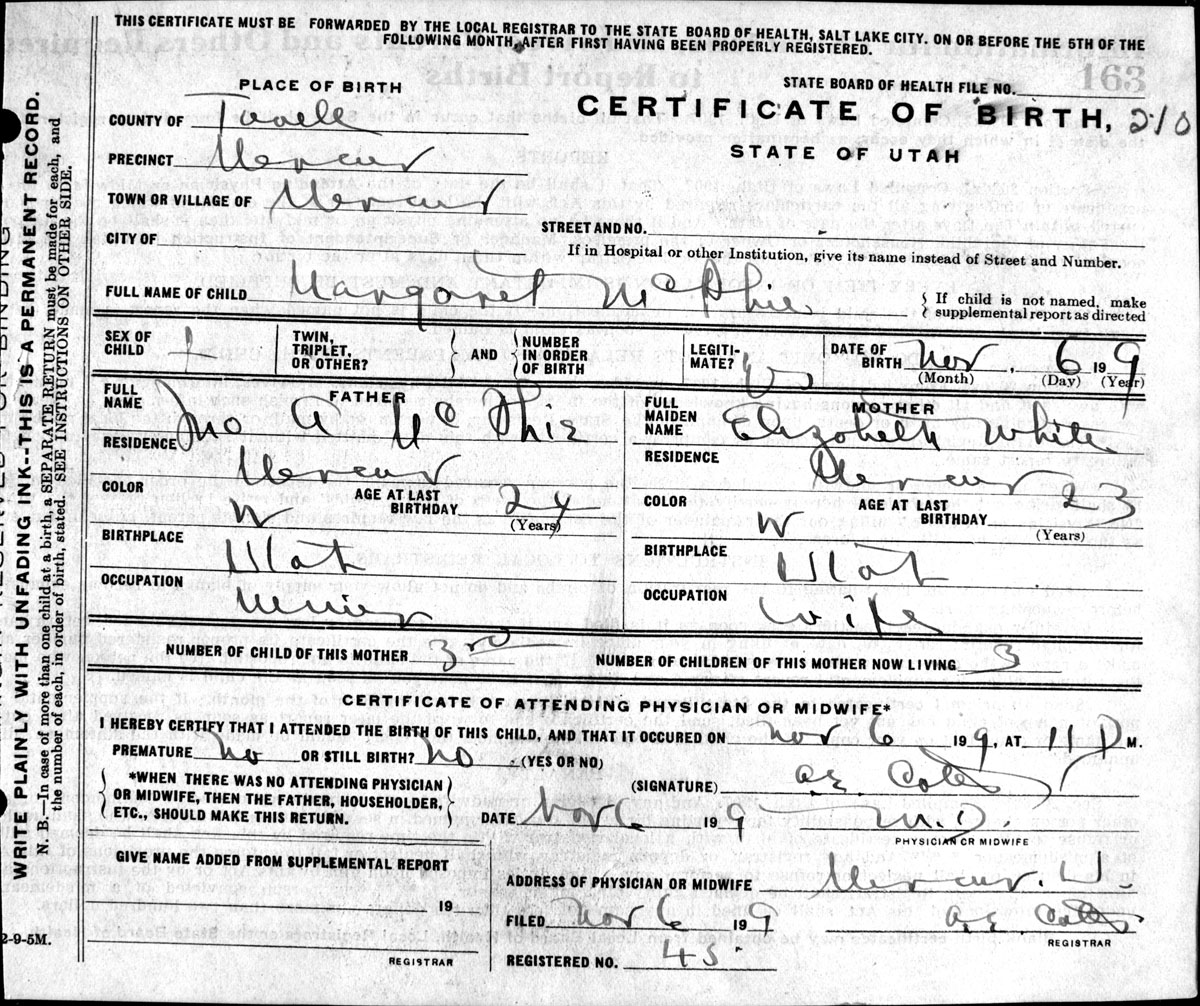 THIS CERTIFICATE MUST BE FORWARDED BY THE LOCAL REGISTRAR TO THE STATE BOARD OF HEALTH, SALT LAKE CITY. ON OR BEFORE THE 5TH OF THE
FOLLOWING MONTH, AFTER FIRST HAVING BEEN PROPERLY REGISTERED.
163
PLACE OF BIRTH
STATE BOARD OF HEALTH FILE NO.
CERTIFICATE OF BIRTH, 210
STATE OF UTAH
COUNTY OF Tooele
PRECINCT Mercur
TOWN OR VILLAGE OF Mercur
STREET AND NO.
CITY OF
If in Hospital or other Institution, give its name instead of Street and Number.
FULL NAME OF CHILD Margaret McPhie
If child is not named, make
supplemental report as directed
SEX OF CHILD
TWIN, TRIPLET, OR OTHER? AND NUMBER IN ORDER OF BIRTH
LEGITIMATE?
DATE OF BIRTH Nov, 6 199
(Month) (Day) (Year)
FATHER
FULL NAME Jno McPhie
RESIDENCE Mercur
COLOR W AGE AT LAST BIRTHDAY 24
(Years)
BIRTHPLACE Utah
OCCUPATION Miner
MOTHER
FULL MAIDEN NAME Elizabeth White
RESIDENCE Mercur
COLOR W AGE AT LAST BIRTHDAY 23
(Years)
BIRTHPLACE Utah
OCCUPATION Wife
NUMBER OF CHILD OF THIS MOTHER 3rd
NUMBER OF CHILDREN OF THIS MOTHER NOW LIVING 3
CERTIFICATE OF ATTENDING PHYSICIAN OR MIDWIFE*
I HEREBY CERTIFY THAT I ATTENDED THE BIRTH OF THIS CHILD, AND THAT IT OCCURED ON Nov 6 199, AT 11 P M.
PREMATURE no OR STILL BIRTH? no. (YES OR NO)
*WHEN THERE WAS NO ATTENDING PHYSICIAN
OR MIDWIFE, THEN THE FATHER, HOUSEHOLDER,
ETC., SHOULD MAKE THIS RETURN.
(SIGNATURE)
DATE Nov 6 199
M.D.
PHYSICIAN OR MIDWIFE
GIVE NAME ADDED FROM SUPPLEMENTAL REPORT
19
REGISTRAR
ADDRESS OF PHYSICIAN OR MIDWIFE Mercur. U.
FILED Nov 6 199
REGISTRAR
REGISTERED NO. 45
WRITE PLAINLY WITH UNFADING INK--THIS IS A PERMANENT RECORD.
N. B.—In case of more than one child at a birth, a SEPARATE RETURN must be made for each, and
the number of each, in order of birth, stated. SEE INSTRUCTIONS ON OTHER SIDE.
2-9-5M.